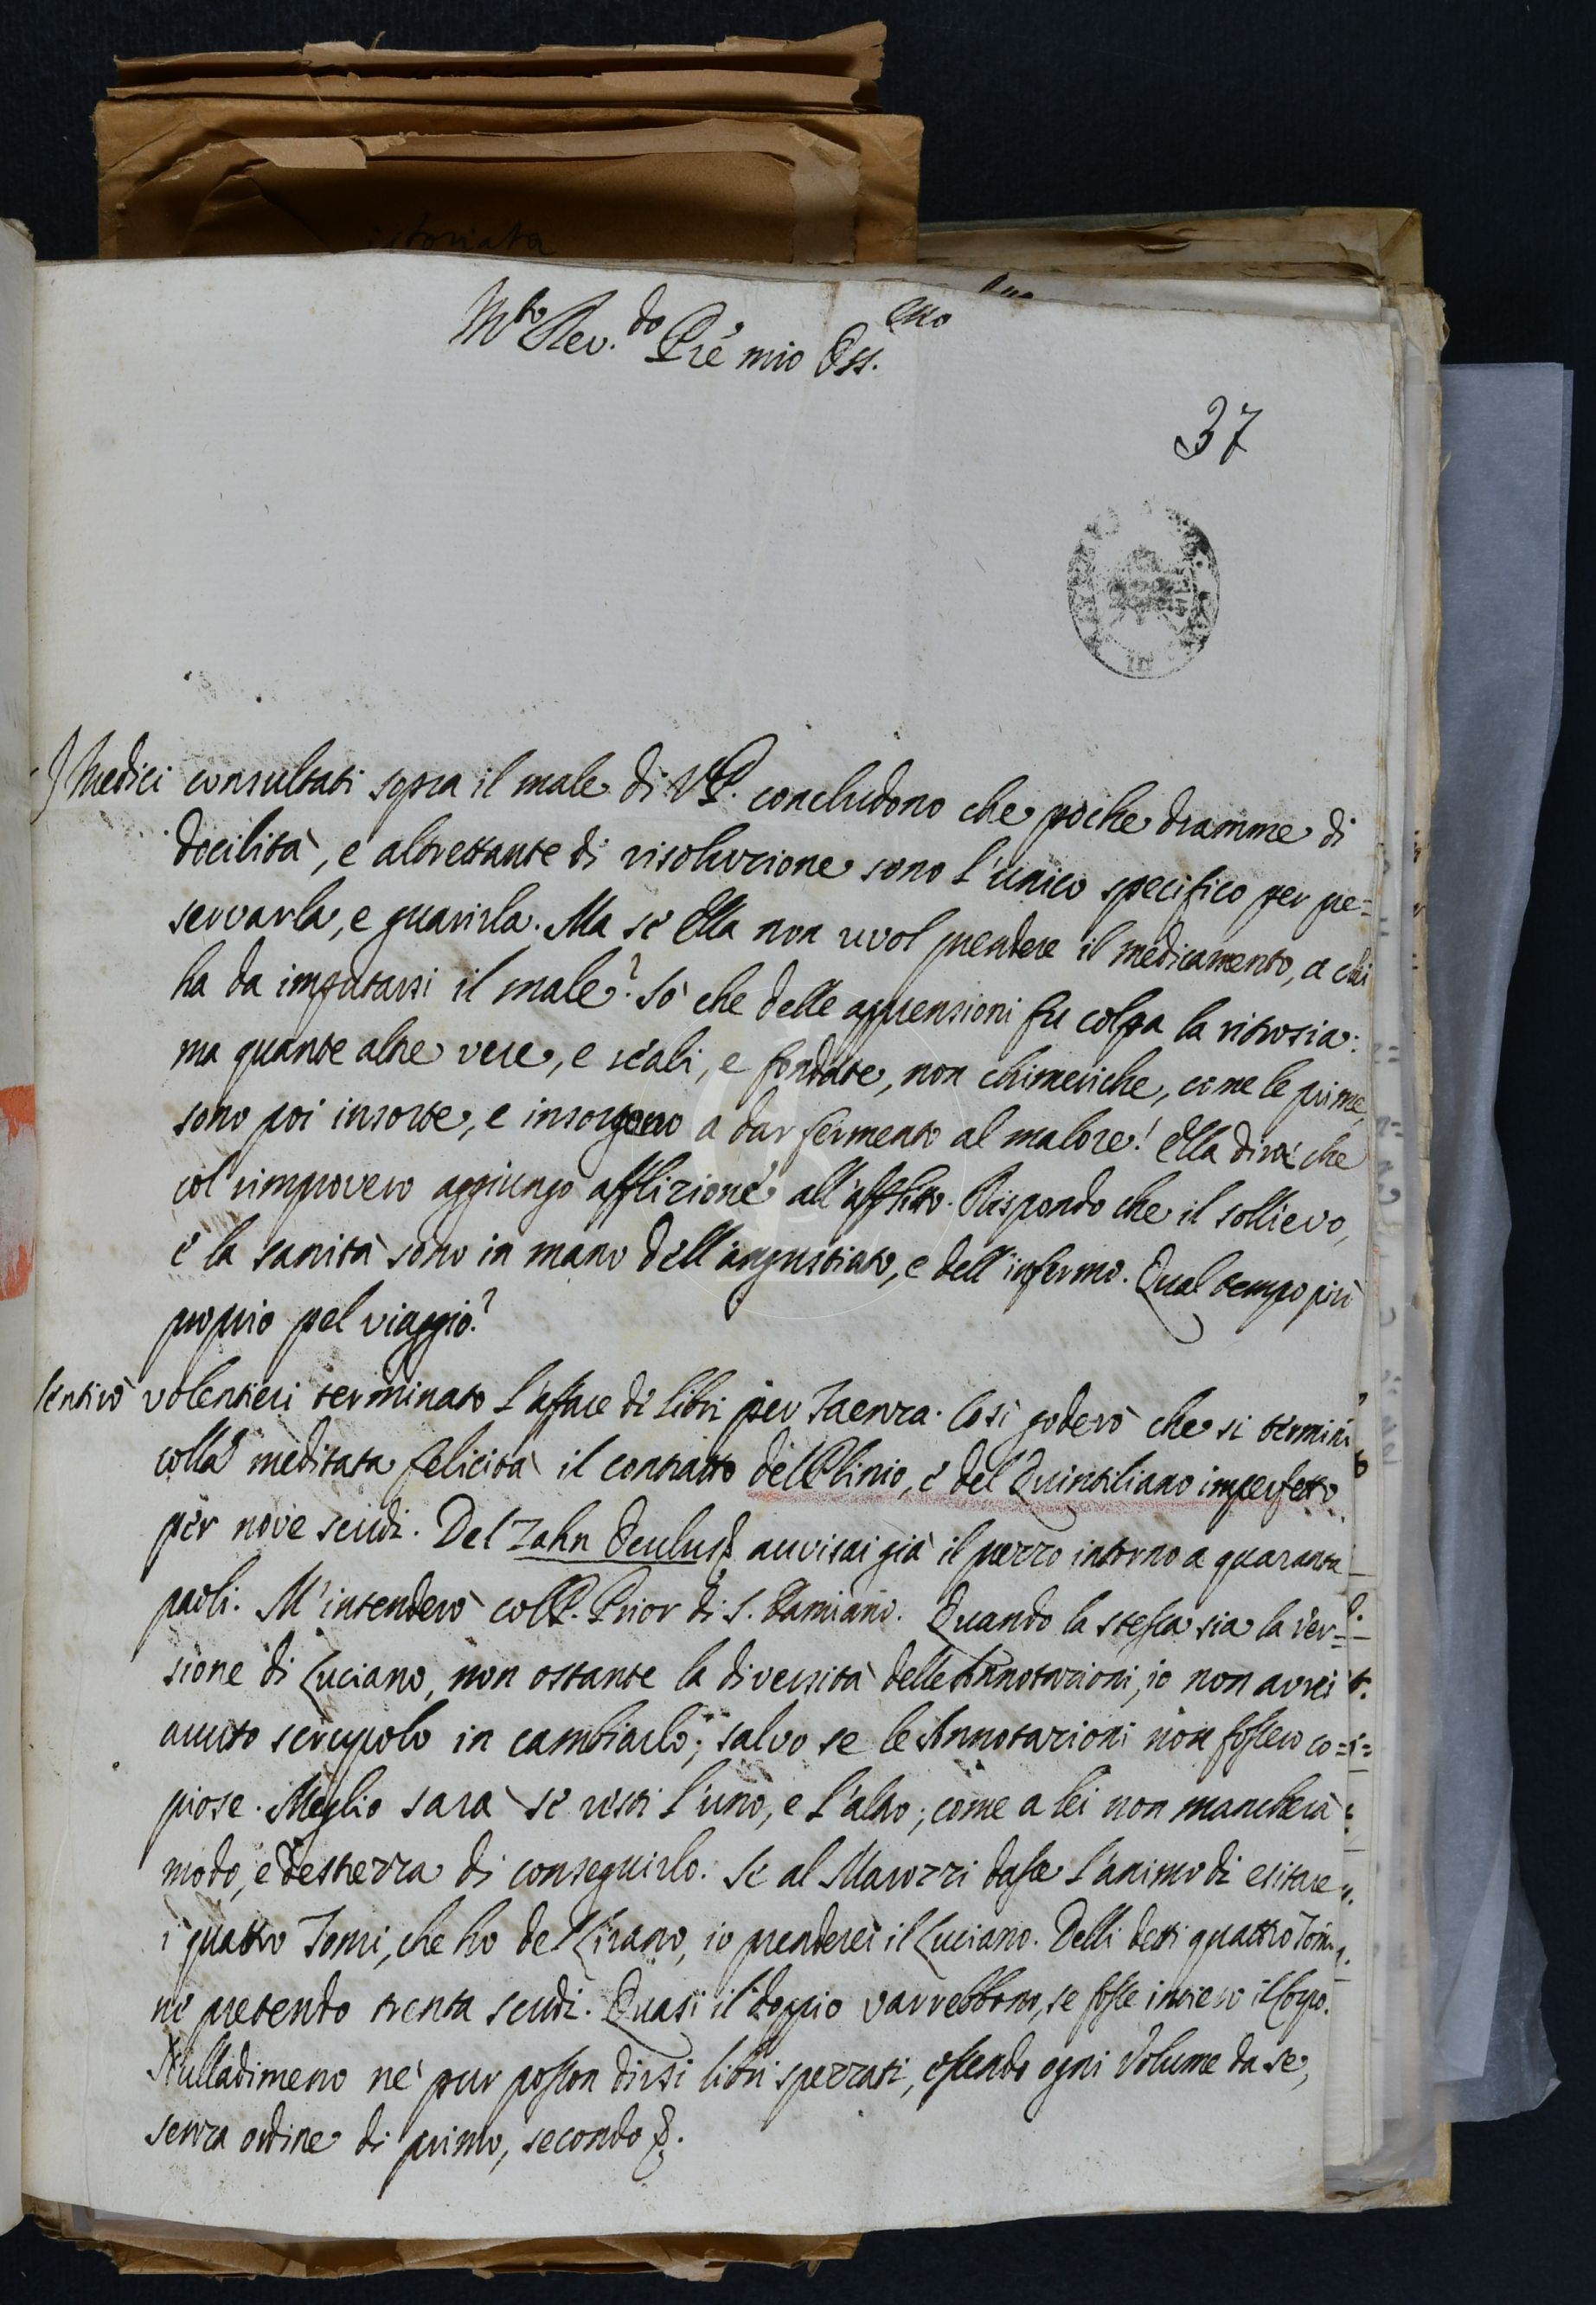 istoriata
M.to Rev.do Pre mio Oss.mo
37
I Medici consultati sopra il male di V.P. concludono che poche dramme di
docilità, e altrettante di risoluzione sono l'unico specifico per pre=
servarla, e guarirla. Ma se Ella non vuol prendere il medicamento, a chi
ha da imputarsi il male? So che delle apprensioni fu colpa la ritrosia:
ma quante altre vere, e reali, e fondate, non chimeriche, come le prime,
sono poi insorte, e insorgono a dar fermento al malore! Ella dirà che
col rimprovero aggiungo afflizione all'afflitto. Rispondo che il sollievo,
e la sanità sono in mano dell'angustiato, e dell'infermo. Qual tempo più
proprio pel viaggio?
Sentirò volentieri terminato l'affare di libri per Faenza. Così goderò che si termini
colla meditata felicità il contratto del Plinio, e del Quintiliano imperfetto
per nove scudi. Del Zahn Oculus &. avvisai già il prezzo intorno a quaranta
paoli. M'intenderò col P. Prior di S. Damiano. Quando la stessa sia la ver=
sione di Luciano, non ostante la diversità delle Annotazioni, io non avrei
avuto scrupolo in cambiarlo; salvo se le Annotazioni non fossero co=
piose. Meglio sarà se resti l'uno, e l'altro; come a lei non mancherà
modo, e destrezza di conseguirlo. Se al Marozzi dasse l'animo di esitare
i quattro Tomi, che ho del Lirano, io prenderei il Luciano. Delli detti quattro Tomi
ne pretendo trenta scudi. Quasi il doppio varrebbono, se fosse intiero il Corpo.
Nulladimeno ne pur posson dirsi libri spezzati, essendo ogni Volume da se,
senza ordine di primo, secondo &.